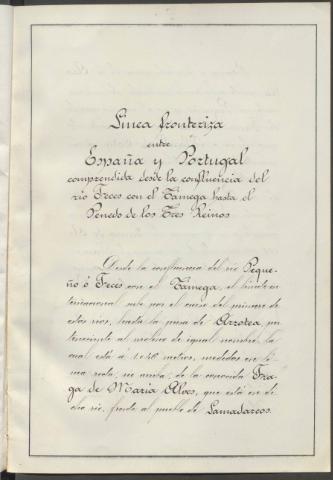 Línea fronteriza
entre
España y Portugal
comprendida desde la confluencia del
río Feces con el Támega hasta el
Penedo de los Tres Reinos
Desde la confluencia del río Peque-
ño ó Feces con el Támega, el límite in-
ternacional sube por el curso del primero de
estos ríos, hasta la presa de Arrotea per-
teneciente al molino de igual nombre, la
cual está á metros, medidos en lí-
nea recta, de la conocida Fra-
ga de María Alves, que está en di-
cho río, frente al pueblo de Lamadarcos.